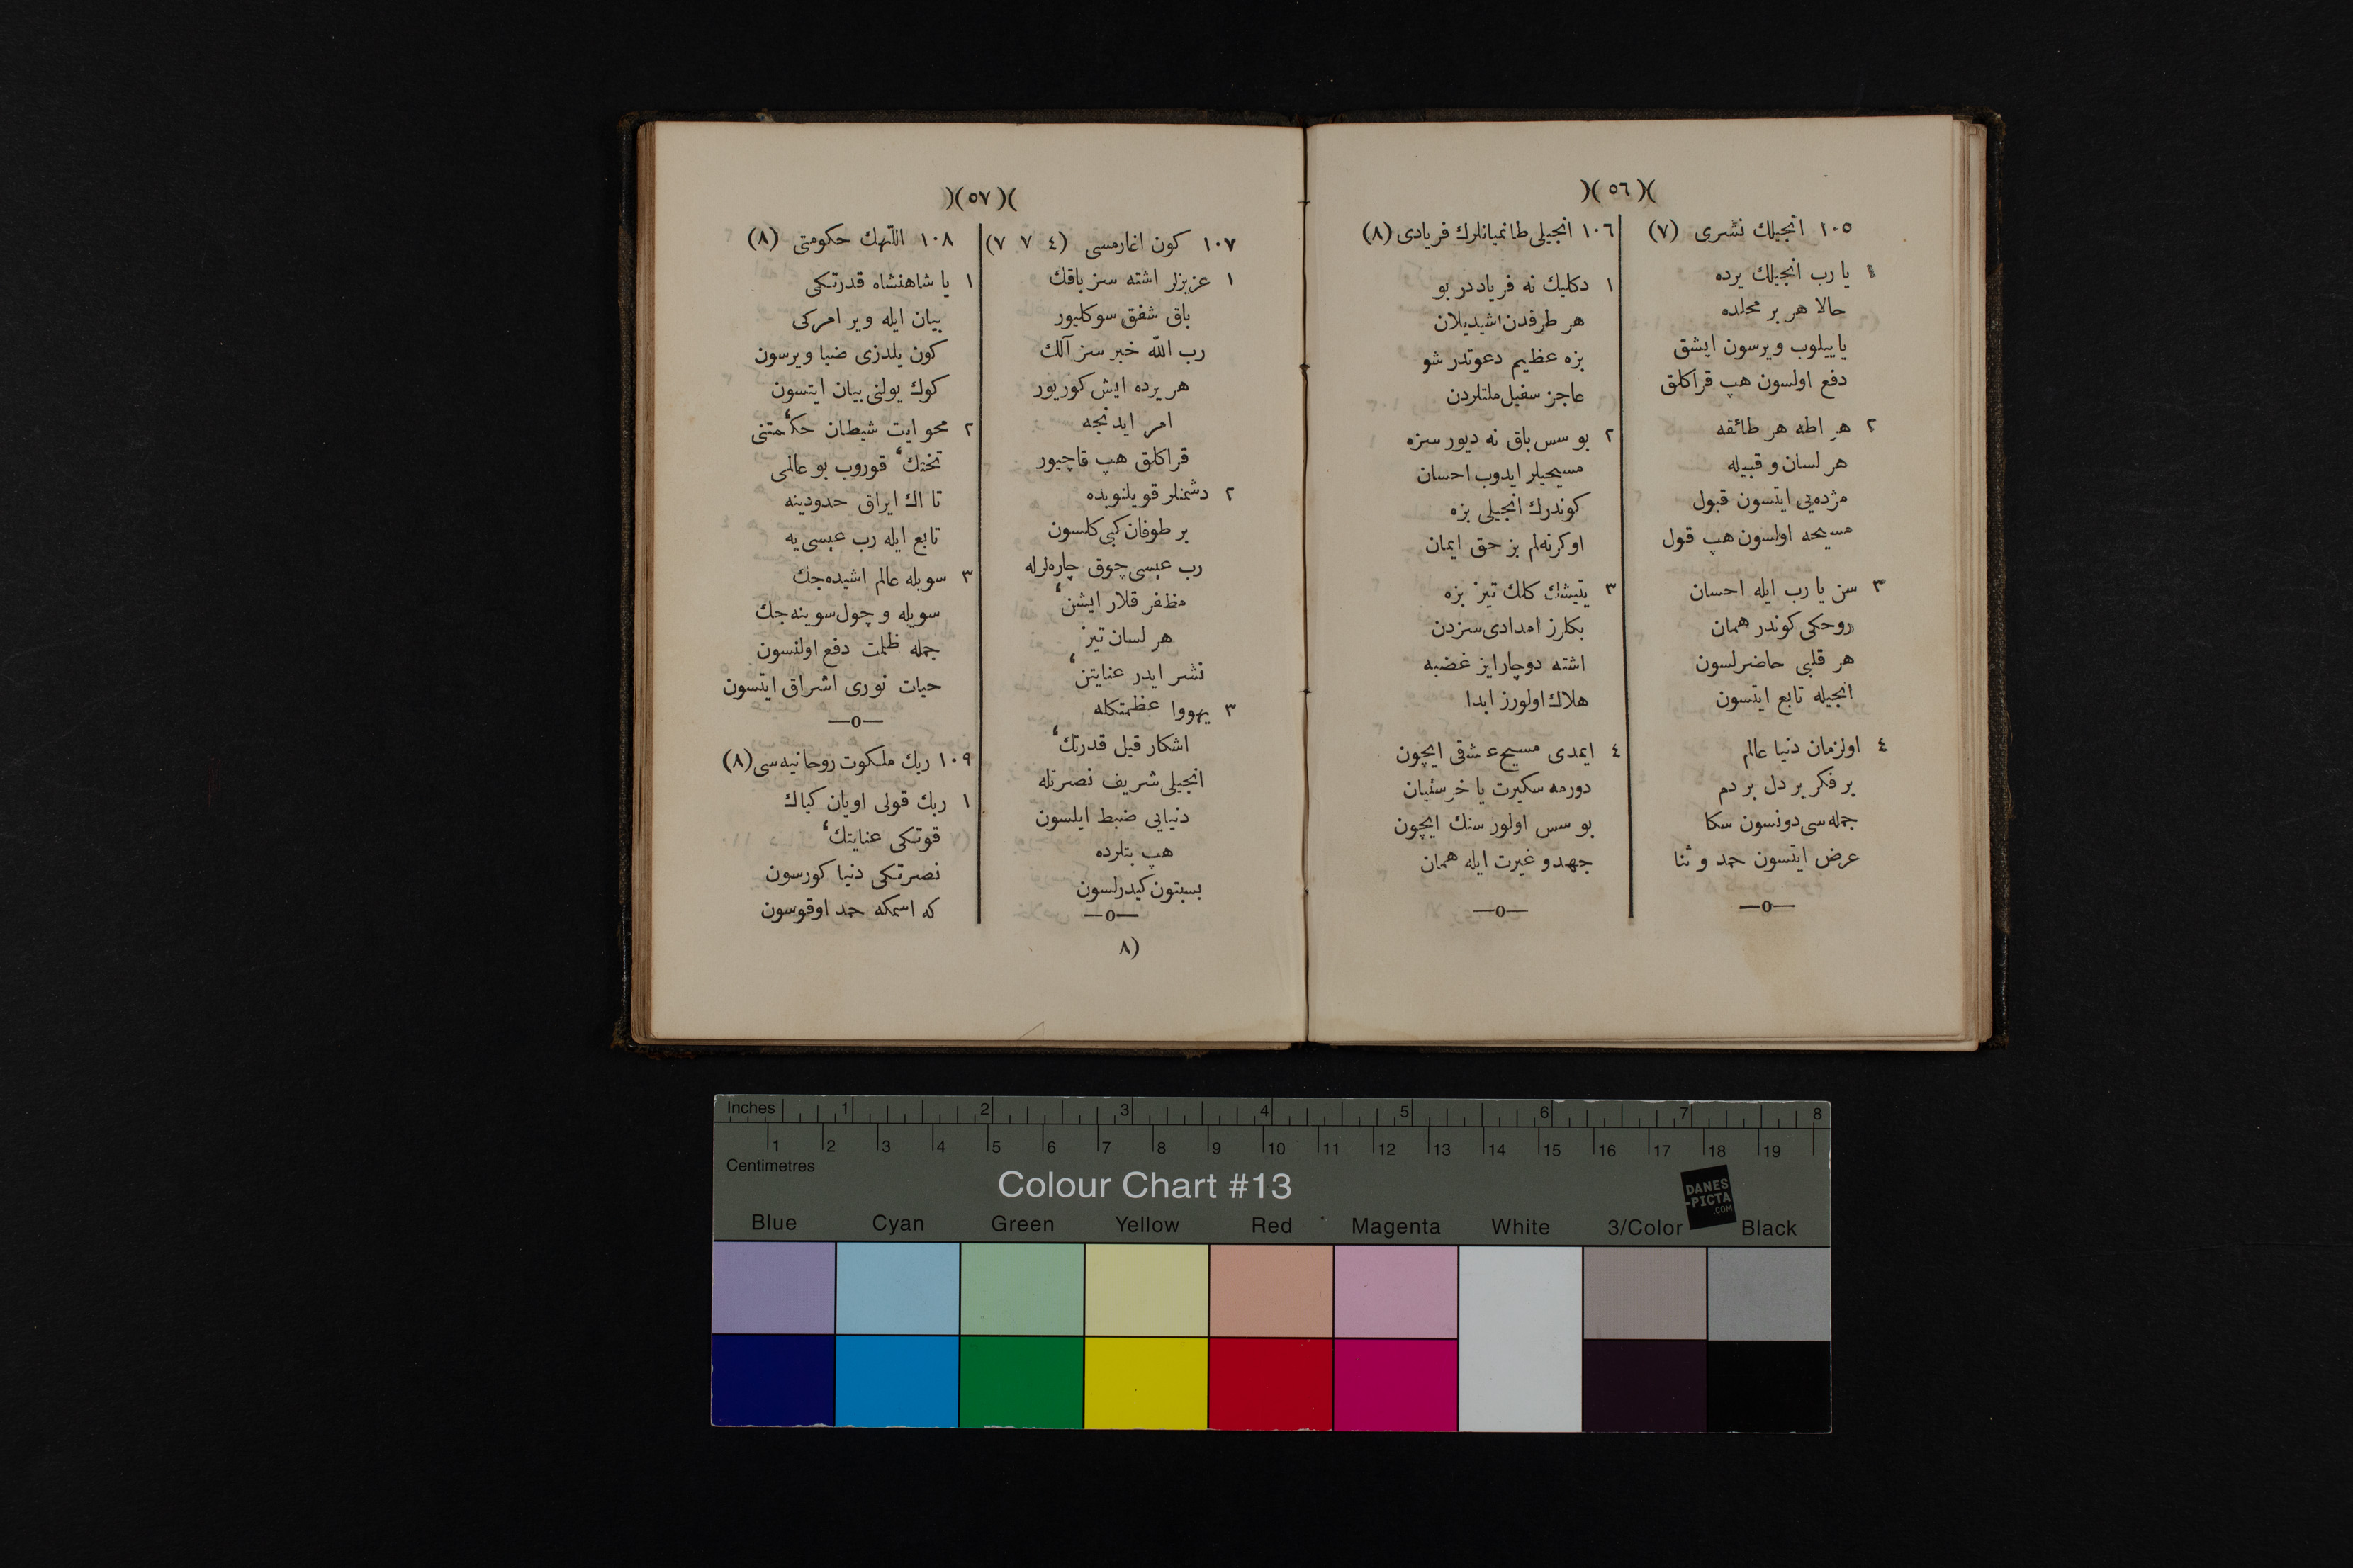 )( ٥٦ )(
١٠٥ انجيلك نشرى (٧)
١ يا رب انجيلك يرده
حالا هر بر محلده
ياييلوب ويرسون ايشق
دفع اولسون هپ قراكلق
٢ هر اطه هر طائفه
هر لسان و قبيله
مژدەيى ايتسون قبول
مسيحه اولسون هپ قول
٣ سن يا رب ايله احسان
روحكى كوندر همان
هر قلبى حاضرلسون
انجيله تابع ايتسون
٤ اولزمان دنيا عالم
بر فكر بر دل بر دم
جمله‌سى دونسون سكا
عرض ايتسون حمد و ثنا
—o—
١٠٦ انجيلى طانميانلرك فريادى (٨)
١ دكليك نه فرياد در بو
هر طرفدن اشيديلان
بزه عظيم دعوتدر شو
عاجز سفيل ملتلردن
٢ بو سس باق نه ديور سزه
مسيحيلر ايدوب احسان
كوندرك انجيلى بزه
اوكرنه‌لم بز حق ايمان
٣ يتيشك كلك تيز بزه
بكلرز امدادى سزدن
اشته دوچارايز غضبه
هلاك اولورز ابدا
٤ ايمدى مسيح عشقى ايچون
دورمه سكيرت يا خرستيان
بو سس اولور سنك ايچون
جهد و غيرت ايله همان
—o—
)( ٥٧ )(
١٠٧ كون اغارمسى (٤ ٧ ٧)
١ عزيزلر اشته سز باقك
باق شفق سوكليور
رب اللّه خبر سز آلك
هر يرده ايش كوريور
امر ايدنجه
قراكلق هپ قاچيور
٢ دشمنلر قويلنوبده
بر طوفان كبى كلسون
رب عيسى چوق چاره‌لرله
مظفر قلار ايشن‘
هر لسان تيز
نشر ايدر عنايتن‘
٣ يهووا عظمتكله
اشكار قيل قدرتك‘
انجيلى شريف نصرتله
دنيايى ضبط ايلسون
هپ بتلرده
بسبتون كيدرلسون
—o—
(٨
١٠٨ اللّهك حكومتى (٨)
١ يا شاهنشاه قدرتكى
بيان ايله وير امركى
كون يلدزى ضيا ويرسون
كوك يولنى بيان ايتسون
٢ محو ايت شيطان حكمتنى
تختك‘ قوروب بو عالمى
تا اك ايراق حدودينه
تابع ايله رب عيسى يه
٣ سويله عالم اشيده‌جك
سويله و چول سوينه‌جك
جمله ظلمت دفع اولنسون
حيات نورى اشراق ايتسون
—o—
١٠٩ ربك ملكوت روحانيه‌سى (٨)
١ ربك قولى اويان كياك
قوتكى عنايتك‘
نصرتكى دنيا كورسون
كه اسمكه حمد اوقوسون
Inches 1 2 3 4 5 6 7 8
1 2 3 4 5 6 7 8 9 10 11 12 13 14 15 16 17 18 19
Centimetres
Colour Chart #13
DANES
-PICTA
.COM
Blue Cyan Green Yellow Red Magenta White 3/Color Black